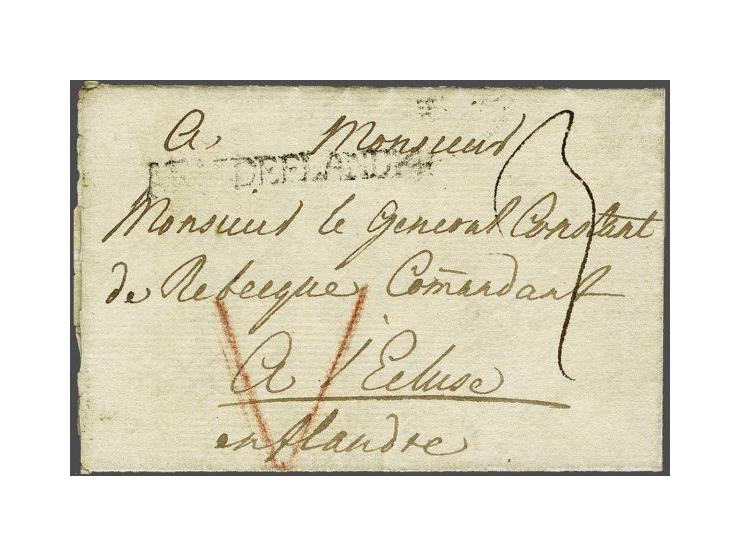 A Monsieur
DEFLANDR
Monsieur le General Constant
de Rebecque Com̄andant
A l'Ecluse
en flandre
V